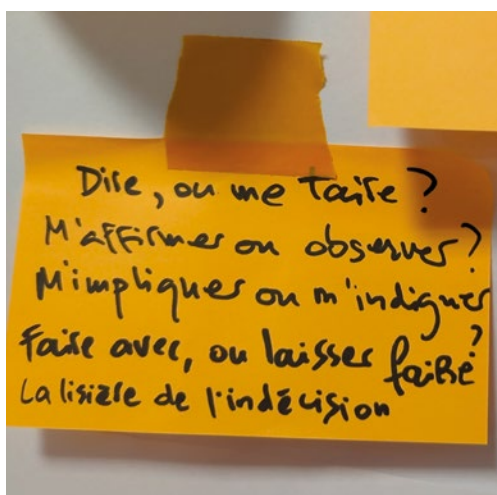 Dire, ou me taire ?
M'affirmer ou observer ?
M'impliquer ou m'indigner ?
Faire avec, ou laisser faire
La lisière de l'indécision